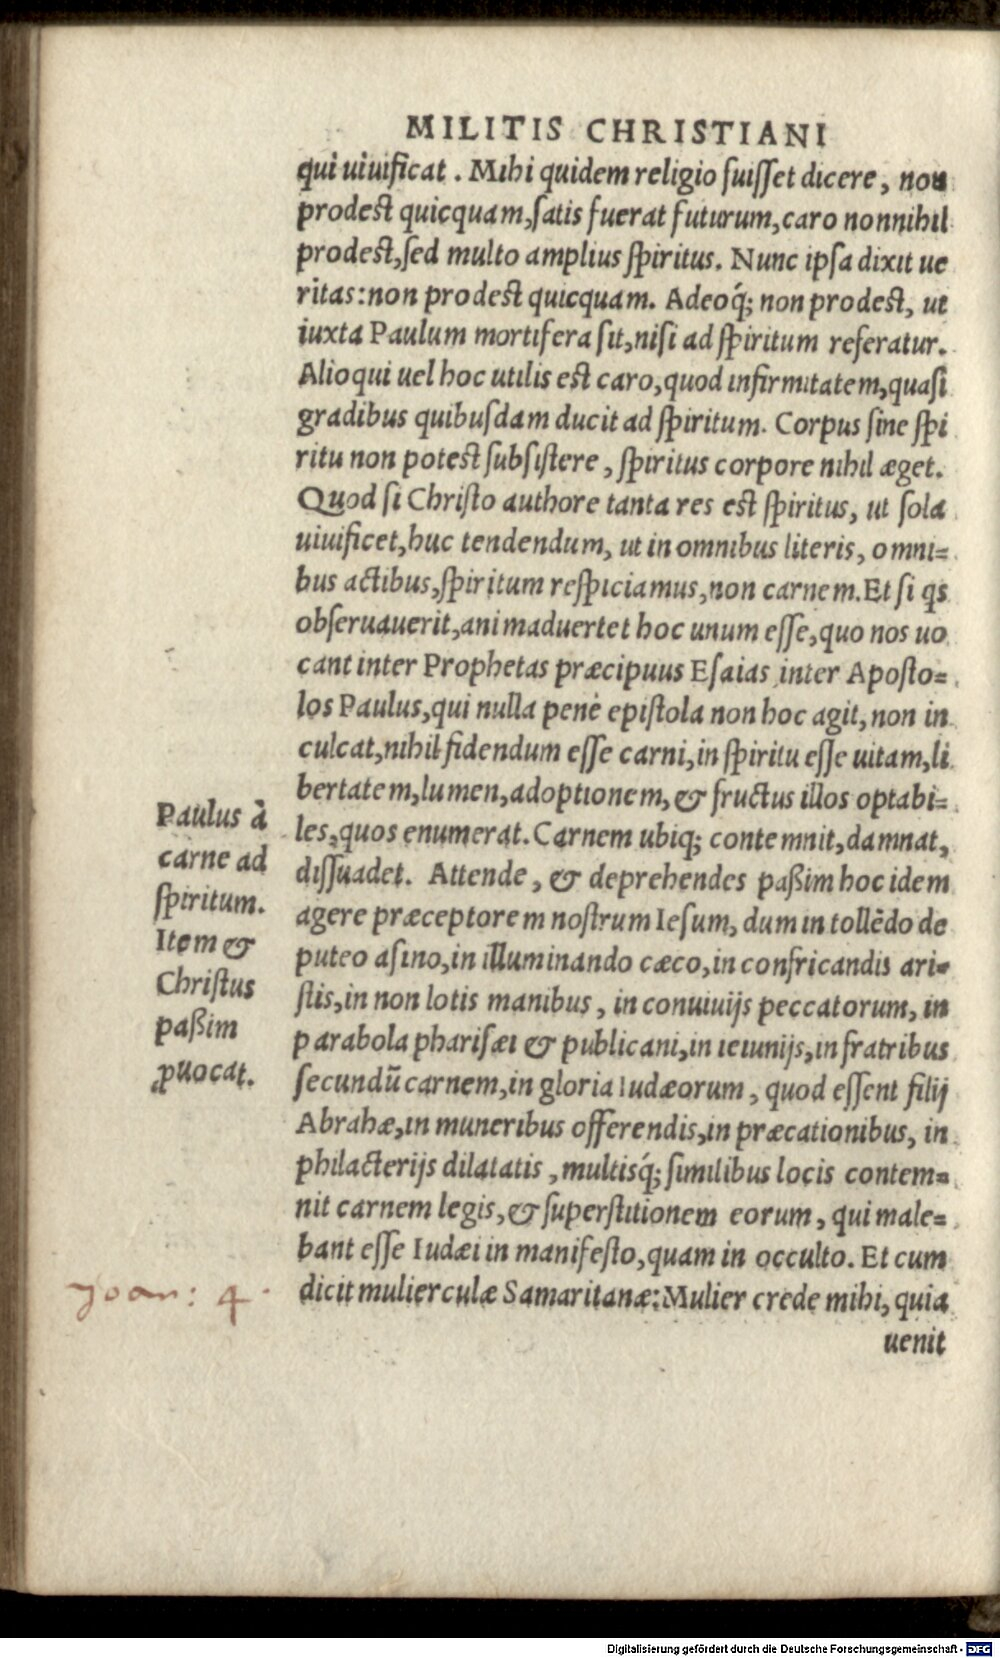 MILITIS CHRISTIANI
qui uiuificat. Mihi quidem religio fuiſſet dicere, non
prodest quicquam, ſatis fuerat futurum, caro nonnihil
prodest, ſed multo amplius ſpiritus. Nunc ipſa dixit ue
ritas: non prodest quicquam. Adeoq́; non prodest, ut
iuxta Paulum mortifera ſit, niſi ad ſpiritum referatur.
Alioqui uel hoc utilis est caro, quod infirmitatem, quaſi
gradibus quibuſdam ducit ad ſpiritum. Corpus ſine ſpi
ritu non potest ſubſiſtere, ſpiritus corpore nihil æget.
Quod ſi Chriſto authore tanta res est ſpiritus, ut ſola
uiuificet, huc tendendum, ut in omnibus literis, omni=
bus actibus, ſpiritum reſpiciamus, non carnem. Et ſi qs
obſeruauerit, animaduertet hoc unum eſſe, quo nos uo
cant inter Prophetas præcipuus Eſaias, inter Apoſto=
los Paulus, qui nulla penè epiſtola non hoc agit, non in
culcat, nihil fidendum eſſe carni, in ſpiritu eſſe uitam, li
bertatem, lumen, adoptionem, & fructus illos optabi=
les, quos enumerat. Carnem ubiq; contemnit, damnat,
diſſuadet. Attende, & deprehendes paßim hoc idem
agere præceptorem noſtrum Ieſum, dum in tollēdo de
puteo aſino, in illuminando cæco, in confricandis ari=
ſtis, in non lotis manibus, in conuiuijs peccatorum, in
parabola phariſæi & publicani, in ieiunijs, in fratribus
ſecundū carnem, in gloria Iudæorum, quod eſſent filij
Abrahæ, in muneribus offerendis, in præcationibus, in
philacterijs dilatatis, multisq́; ſimilibus locis contem=
nit carnem legis, & ſuperſtitionem eorum, qui male=
bant eſſe Iudæi in manifeſto, quam in occulto. Et cum
dicit mulierculæ Samaritanæ: Mulier crede mihi, quia
uenit
Paulus à
carne ad
ſpiritum.
Item &
Chriſtus
paßim
ꝓuocat.
Joan: 4.
Digitalisierung gefördert durch die Deutsche Forschungsgemeinschaft - DFG